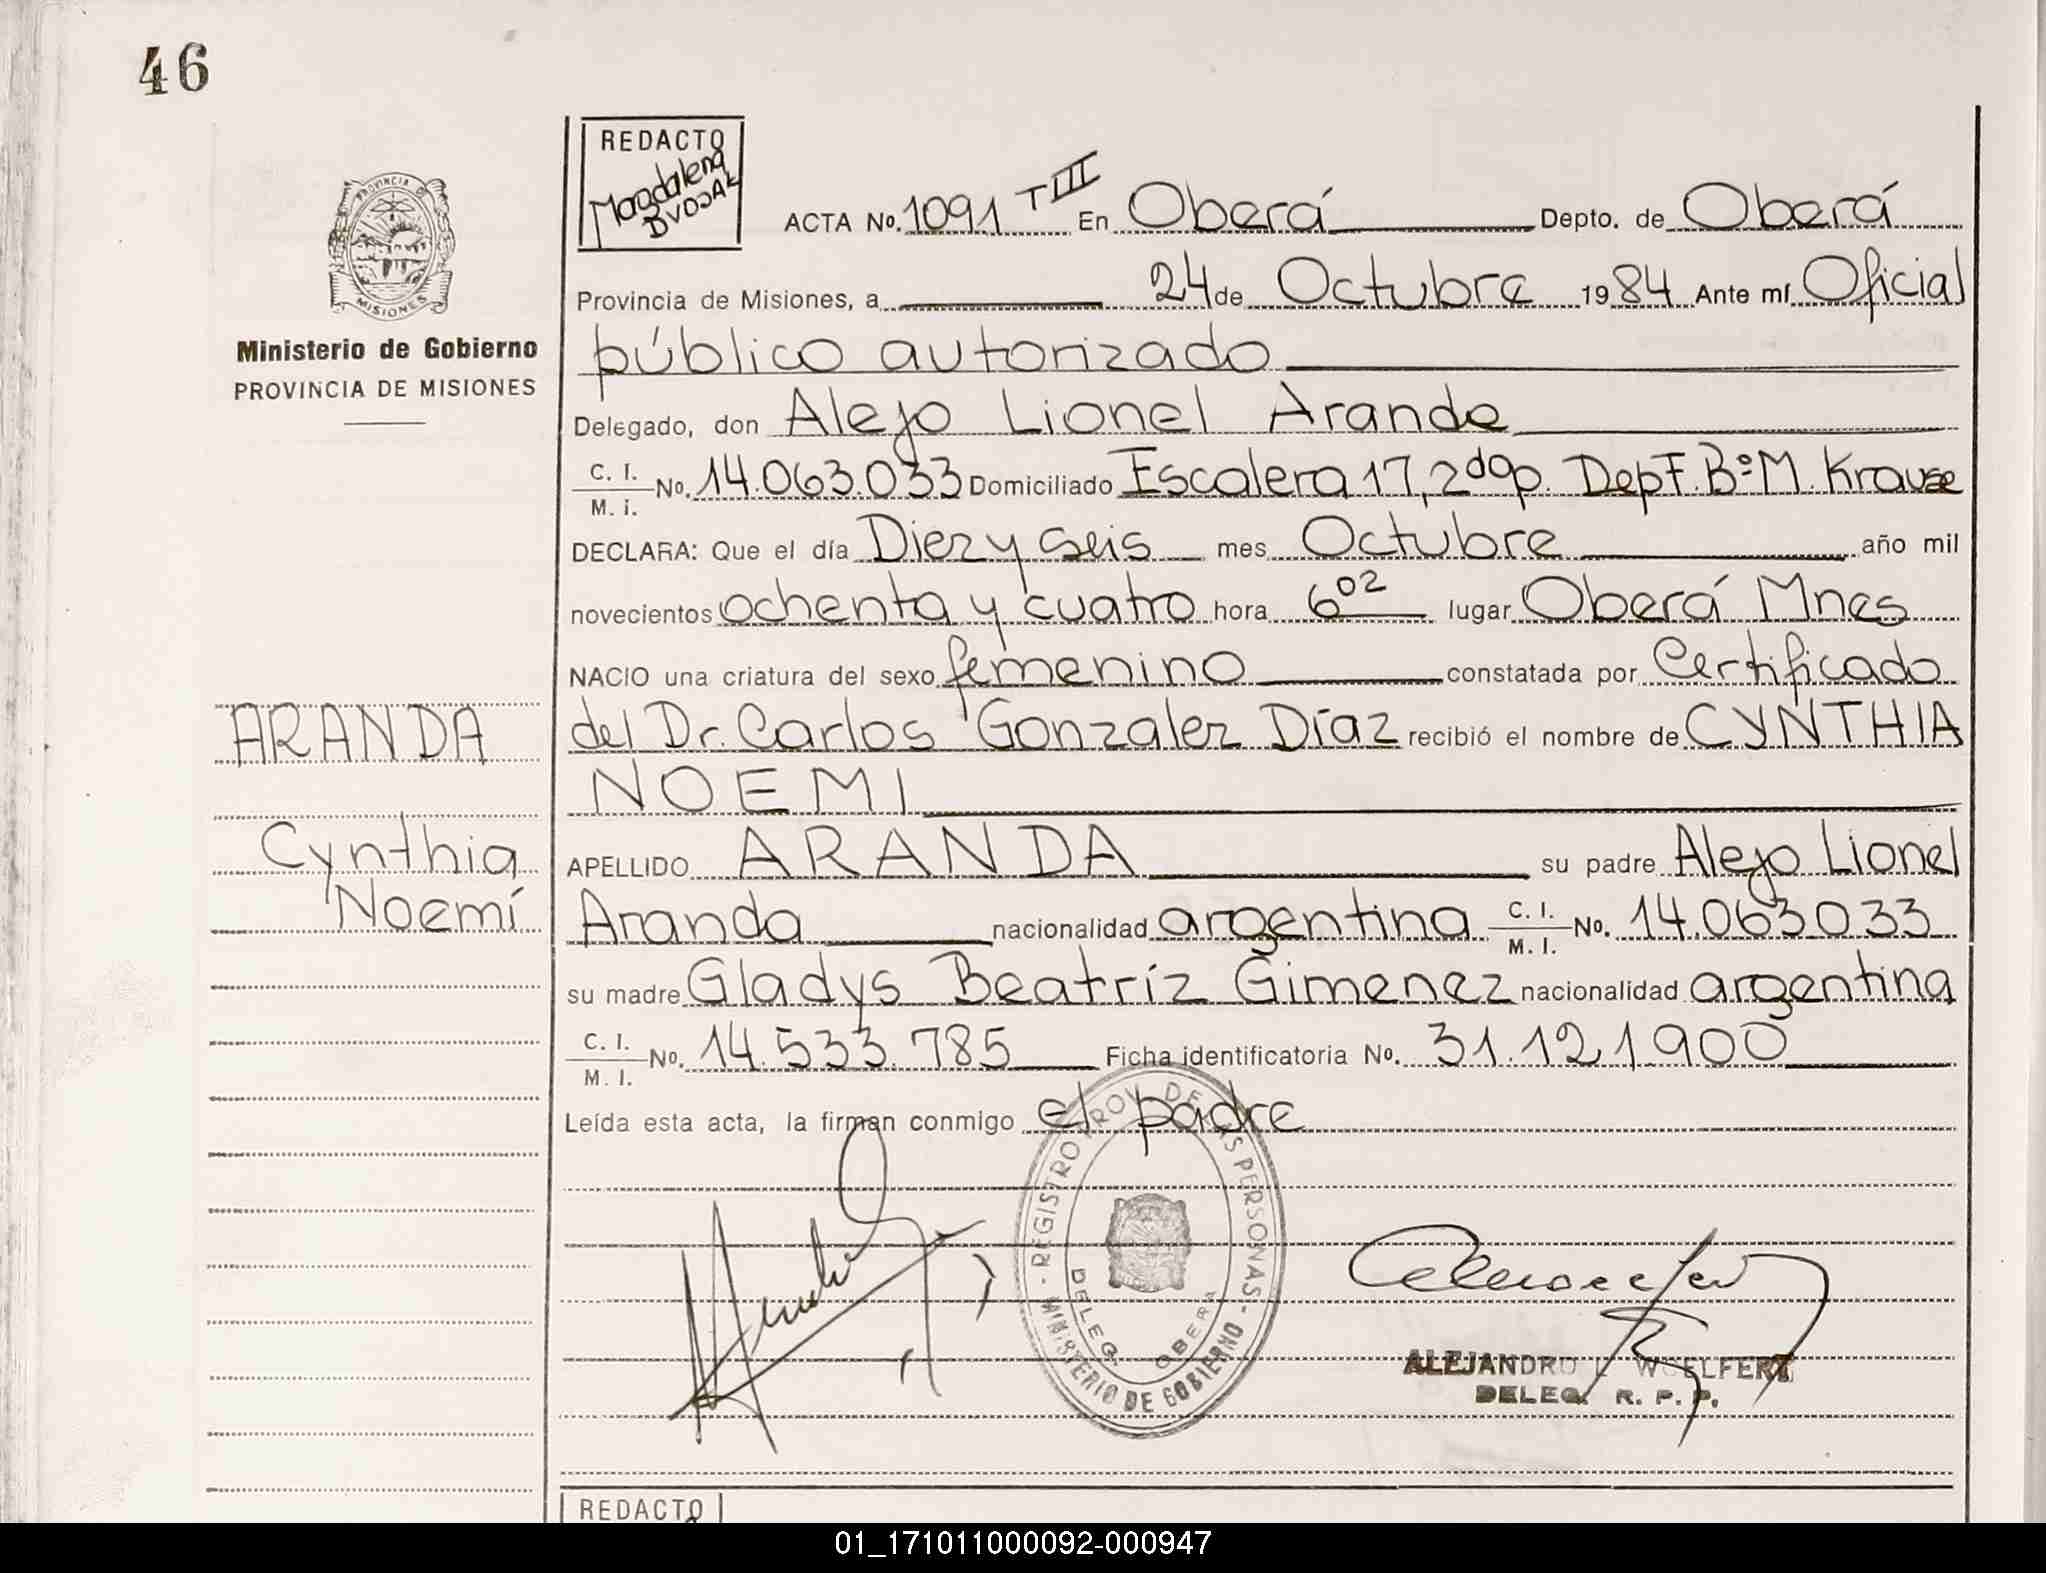 46
REDACTO
Magdalena
ACTA No. 1091 TIII En Oberá Depto. de Oberá
PROVINCIA DE MISIONES
Ministerio de Gobierno
PROVINCIA DE MISIONES
Provincia de Misiones, a 24 de Octubre 1984 Ante mí Oficial
público autorizado
Delegado, don Alejo Lionel Aranda
C. I. M. i. No. 14.063.033 Domiciliado Escalera 17, 2do p. Dep F. Bº M. Krause
DECLARA: Que el día Diez y seis mes Octubre año mil
novecientos ochenta y cuatro hora 6 02 lugar Oberá Mnes
NACIO una criatura del sexo femenino constatada por Certificado
del Dr. Carlos Gonzalez Díaz recibió el nombre de CYNTHIA
NOEMI
APELLIDO ARANDA su padre Alejo Lionel
Aranda nacionalidad argentina C. I. M. I. No. 14.063.033
su madre Gladys Beatríz Gimenez nacionalidad argentina
C. I. M. I. No. 14.533.785 Ficha identificatoria No. 31.121.900
Leída esta acta, la firman conmigo el padre
ARANDA
Cynthia
Noemí
REGISTRO PROV. DE LAS PERSONAS - MINISTERIO DE GOBIERNO -
DELEG. OBERA
ALEJANDRO L. WOELFERT
DELEG. R. P. P.
REDACTO
01_171011000092-000947